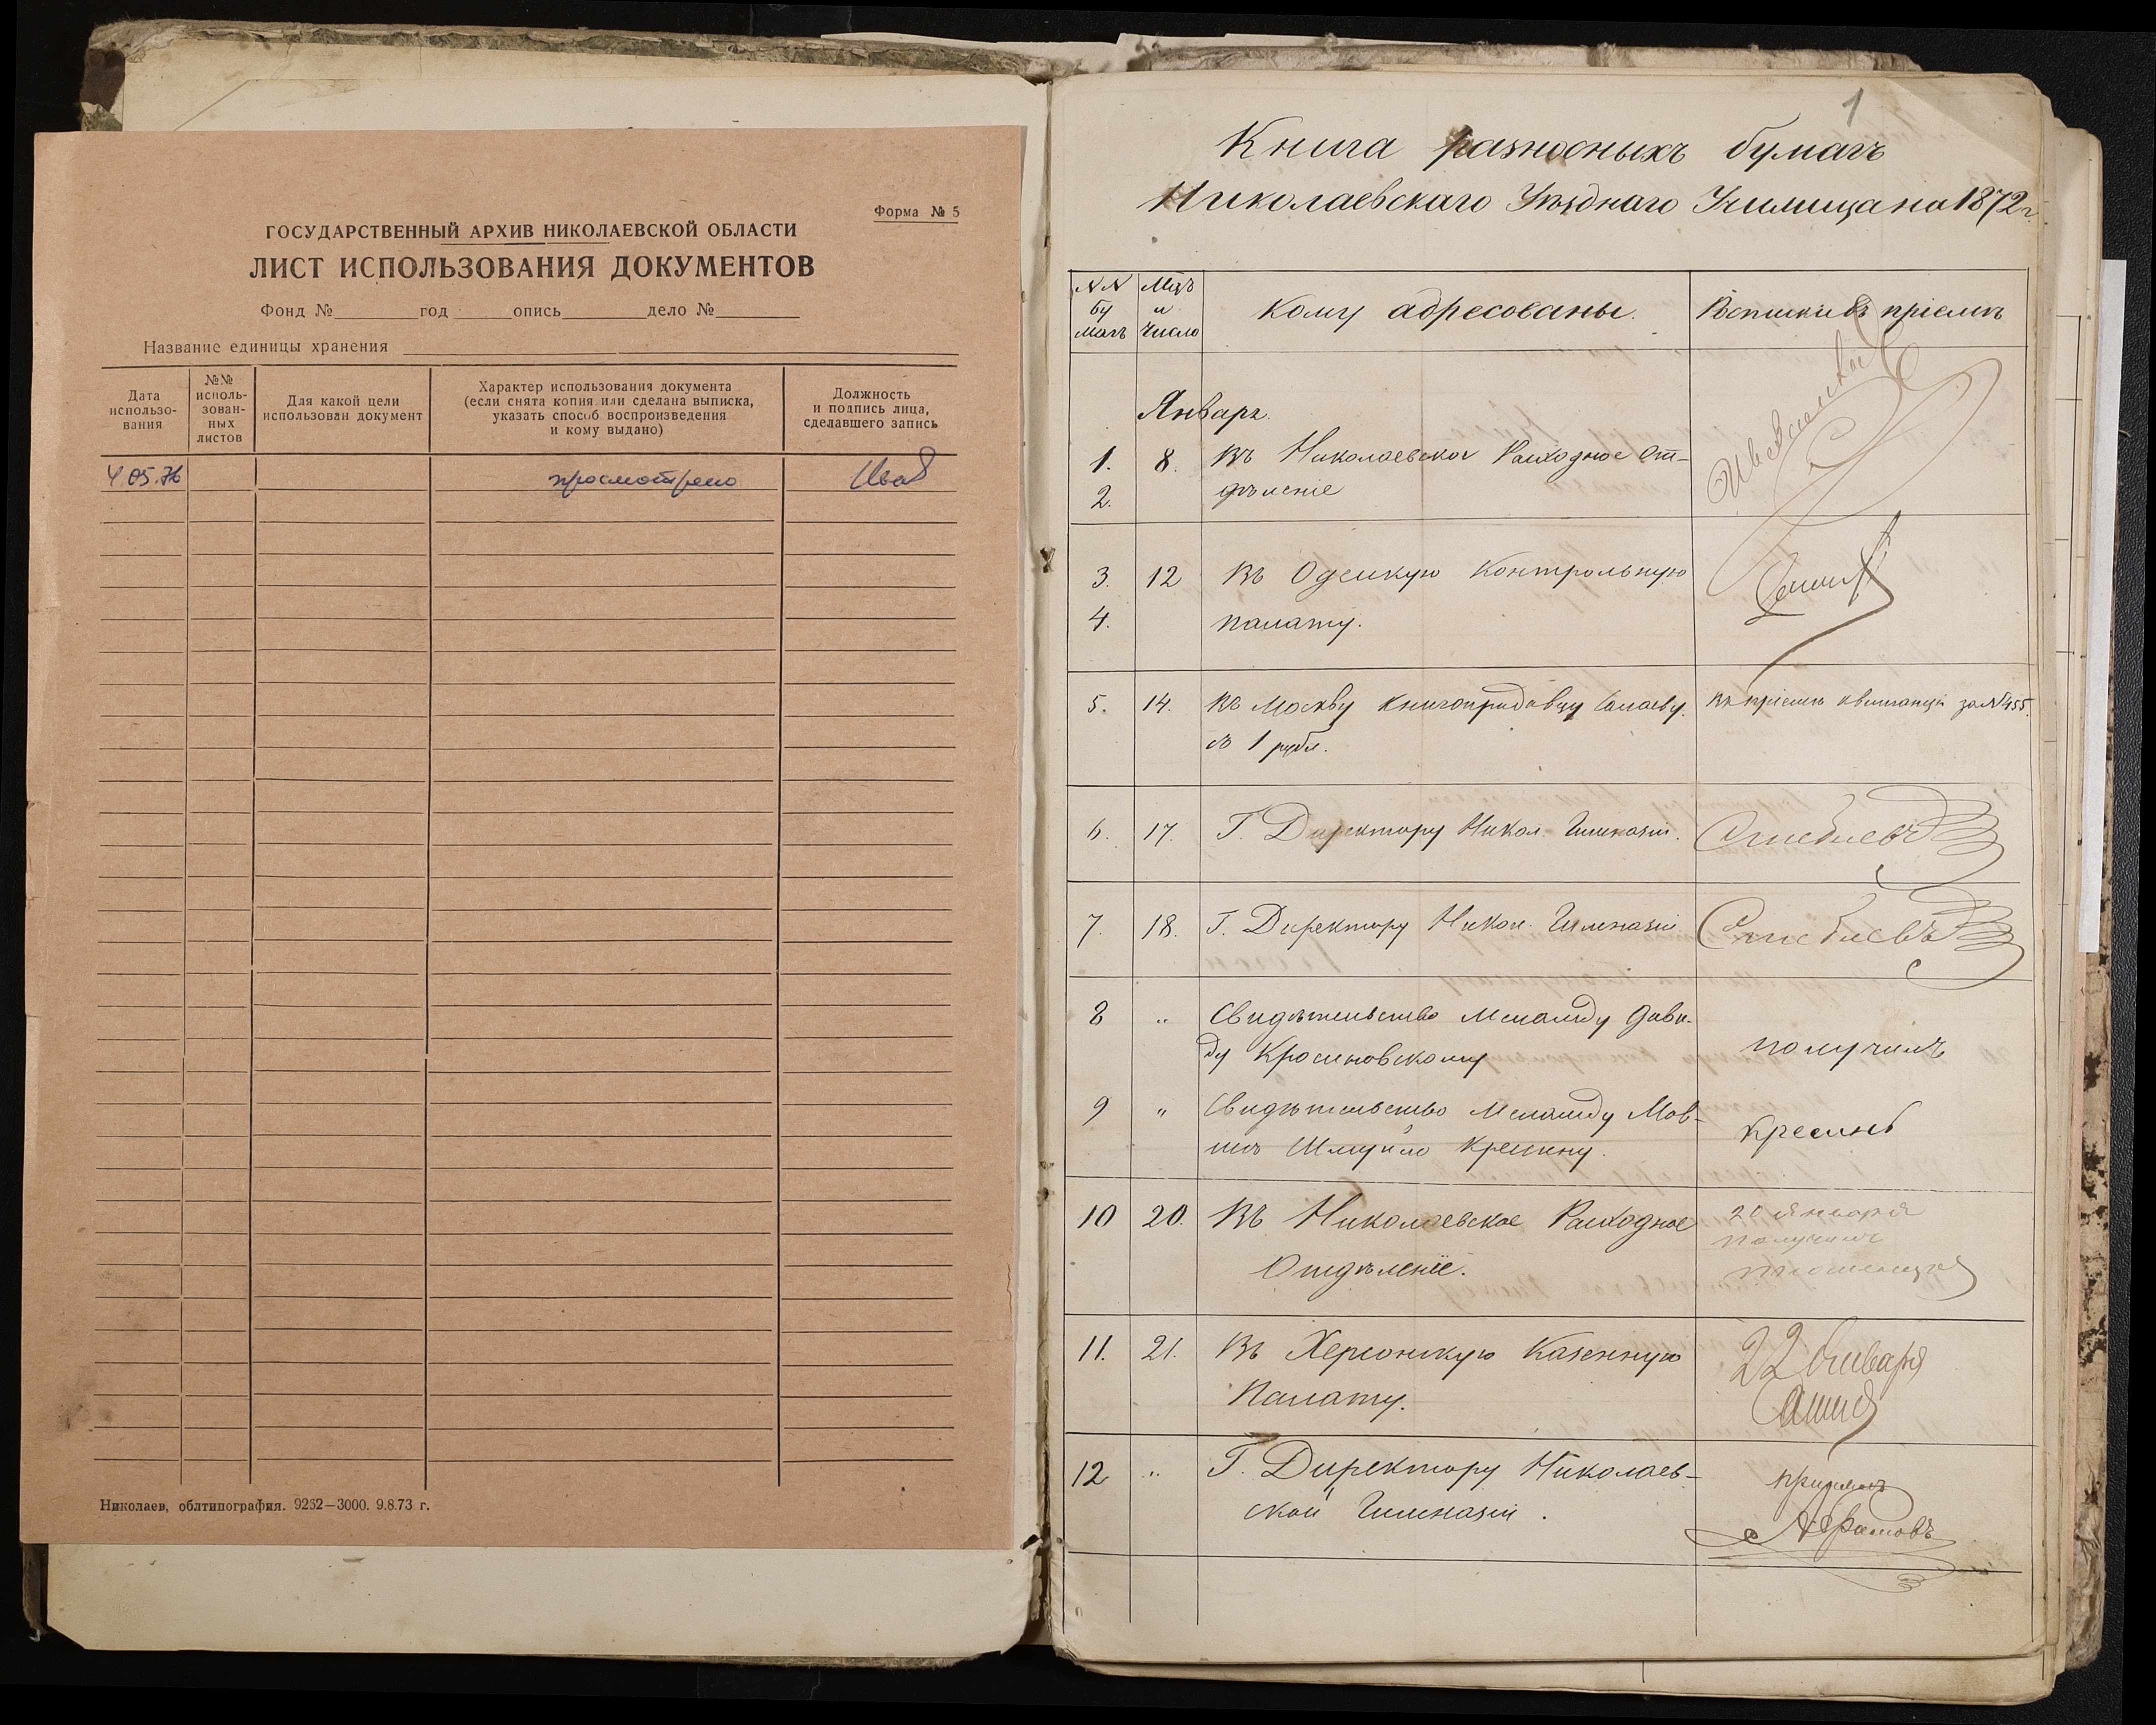 Форма № 5
ГОСУДАРСТВЕННЫЙ АРХИВ НИКОЛАЕВСКОЙ ОБЛАСТИ
ЛИСТ ИСПОЛЬЗОВАНИЯ ДОКУМЕНТОВ
Фонд № год опись дело №
Название единицы хранения
Дата использо-вания
№№ исполь-зован-ных листов
Для какой цели использован документ
Характер использования документа (если снята копия или сделана выписка, указать способ воспроизведения и кому выдано)
Должность и подпись лица, сделавшего запись
4 05.76 просмотрено
Николаев, облтипография. 9252—3000. 9.8.73 г.
1
Книга разносныхъ бумагъ
Николаевскаго Уѣзднаго Училища на 1872 г.
№№ бу магъ
Мцъ и число
Кому адресованы.
Росписки въ пріемѣ
Январь.
1. 8. Въ Николаевское Расходное От-
2. дѣленіе
3. 12 Въ Одесскую Контрольную
4. палату.
5. 14. Въ Москву книгопродавцу Салаеву. Въ пріемѣ квитанція за №455.
съ 1 рубл.
6. 17. Г. Директору Никол. Гимназіи.
7. 18. Г. Директору Никол. Гимназіи
8 " Свидѣтельство Меламду Дави-
ду Красиновскому получилъ
9 " Свидѣтельство Меламду Мов-
шѣ Шмуйлѣ Кресину. Кресинъ
10 20. Въ Николаевское Расходное 20 Января
Отдѣленіе. получилъ
11. 21. Въ Херсонскую Казенную 22 Января
Палату.
12 " Г. Директору Николаев-
ской Гимназіи.